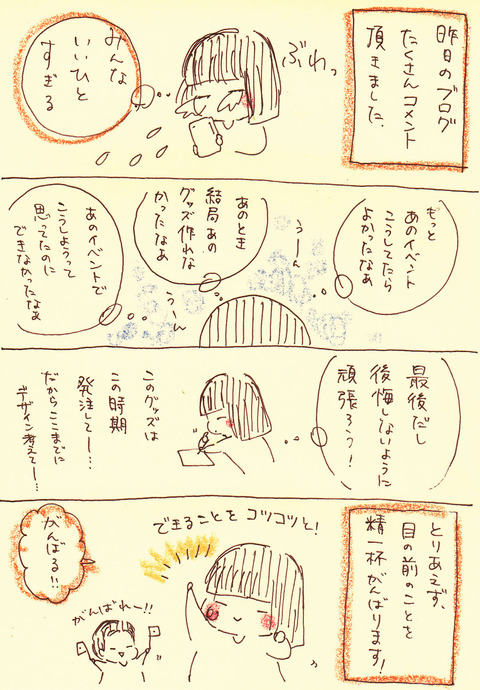 昨日のブログ
たくさんコメント
頂きました。
ぶわっ
みんな
いいひと
すぎる
もっと
あのイベント
こうしてたら
よかったなぁ
うーん
あのとき
結局あの
グッズ作れな
かったなぁ
うーん
あのイベントで
こうしようって
思ってたのに
できなかったなぁ
最後だし
後悔しないように
頑張ろう!
このグッズは
この時期
発注してー…
だからここまでに
デザイン考えてー…
とりあえず、
目の前のことを
精一杯がんばります!
できることをコツコツと!
がんばれー!!
がんばる!!